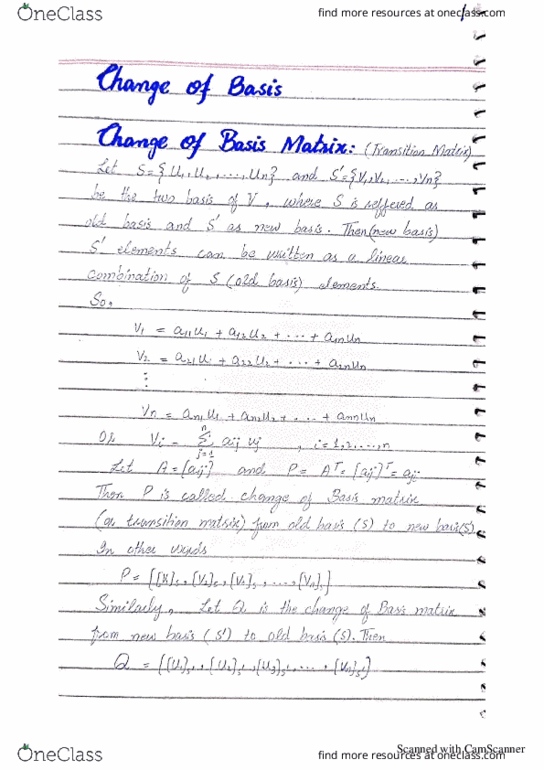 OneClass
find more resources at oneclass.com
Change of Basis
Change of Basis Matrix: (Transition Matrix)
Let S={u₁,u₂,...,un} and S'={V₁,V₂,...,Vn}
be the two basis of V, where S is reffered as
old basis and S' as new basis. Then (new basis)
S' elements can be written as a linear
combination of S (old basis) elements.
So,
V₁ = a₁₁u₁ + a₁₂u₂ + ... + a₁nun
V₂ = a₂₁u₁ + a₂₂u₂ + ... + a₂nun
⋮
Vn = an₁u₁ + an₂u₂ + ... + annun
Or Vi = Σⁿj=1 aij uj , i=1,2,...,n
Let A=[aij] and P= Aᵀ= [aij]ᵀ= aji
Then P is called change of Basis matrix
(or transition matrix) from old basis (S) to new basis(S)
In other words
P= [[V₁]s, [V₂]s, [V₃]s, ..., [Vn]s]
Similarly, Let Q is the change of Basis matrix
from new basis (S') to old basis (S). Then
Q = [[U₁]s', [U₂]s', [U₃]s', ..., [Vn]s']
Scanned with CamScanner
OneClass
find more resources at oneclass.com